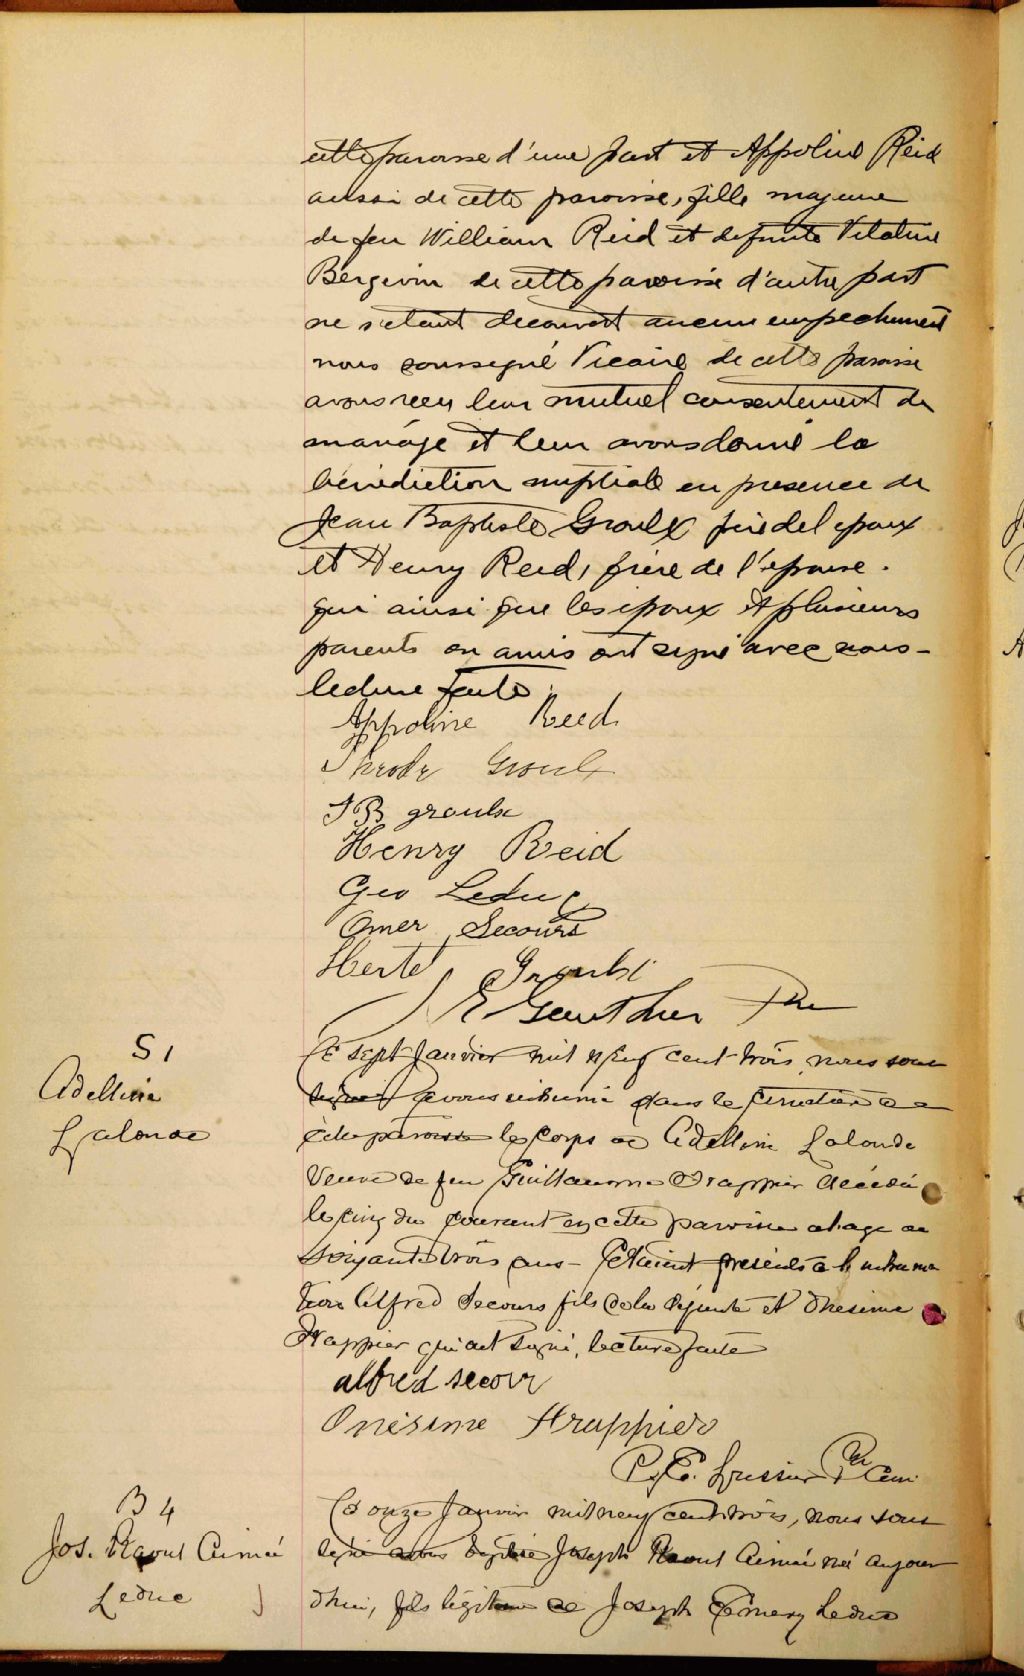 cette paroisse d'une part et Appoline Reid
aussi de cette paroisse, fille majeure
de feu William Reid et defunte Vitaline
Bergevin de cette paroisse d'autre part
ne s'etant decouvert aucun empechement
nous soussigné Vicaire de cette paroisse
avons recu leur mutuel consentement de
mariage et leur avons donné la
bénédiction nuptiale en presence de
Jean Baptiste Groulx père del epoux
et Henry Reid, frère de l'epouse.
qui ainsi que les epoux et plusieurs
parents ou amis ont signé avec nous -
lecture faite.
Appoline Reed
Groulx
J B groulx
Henry Reid
Geo Leduc
Omer Secours
Groulx
E Gauthier Ptre
S 1
Adelline
Lalonde
Ce sept Janvier mil neuf cent trois, nous sous
signé avons inhumé dans le cimetière de
cette paroisse le corps de Adelline Lalonde
veuve de feu Guillaume Frappier décédée
le cinq du courant en cette paroisse a l'age de
soixante trois ans - Etaient présents a l'inhuma
tion Alfred Secours fils de la défunte et Onesime
Frappier qui ont signé, lecture faite
alfred secour
Onésime Frappier
Lussier Ptre Curé
B 4
Jos. Raoul Aimé
Leduc
Ce onze Janvier mil neuf cent trois, nous sous
signé avons baptisé Joseph Raoul Aimé né aujour
d'hui, fils légitime de Joseph Emery Leduc